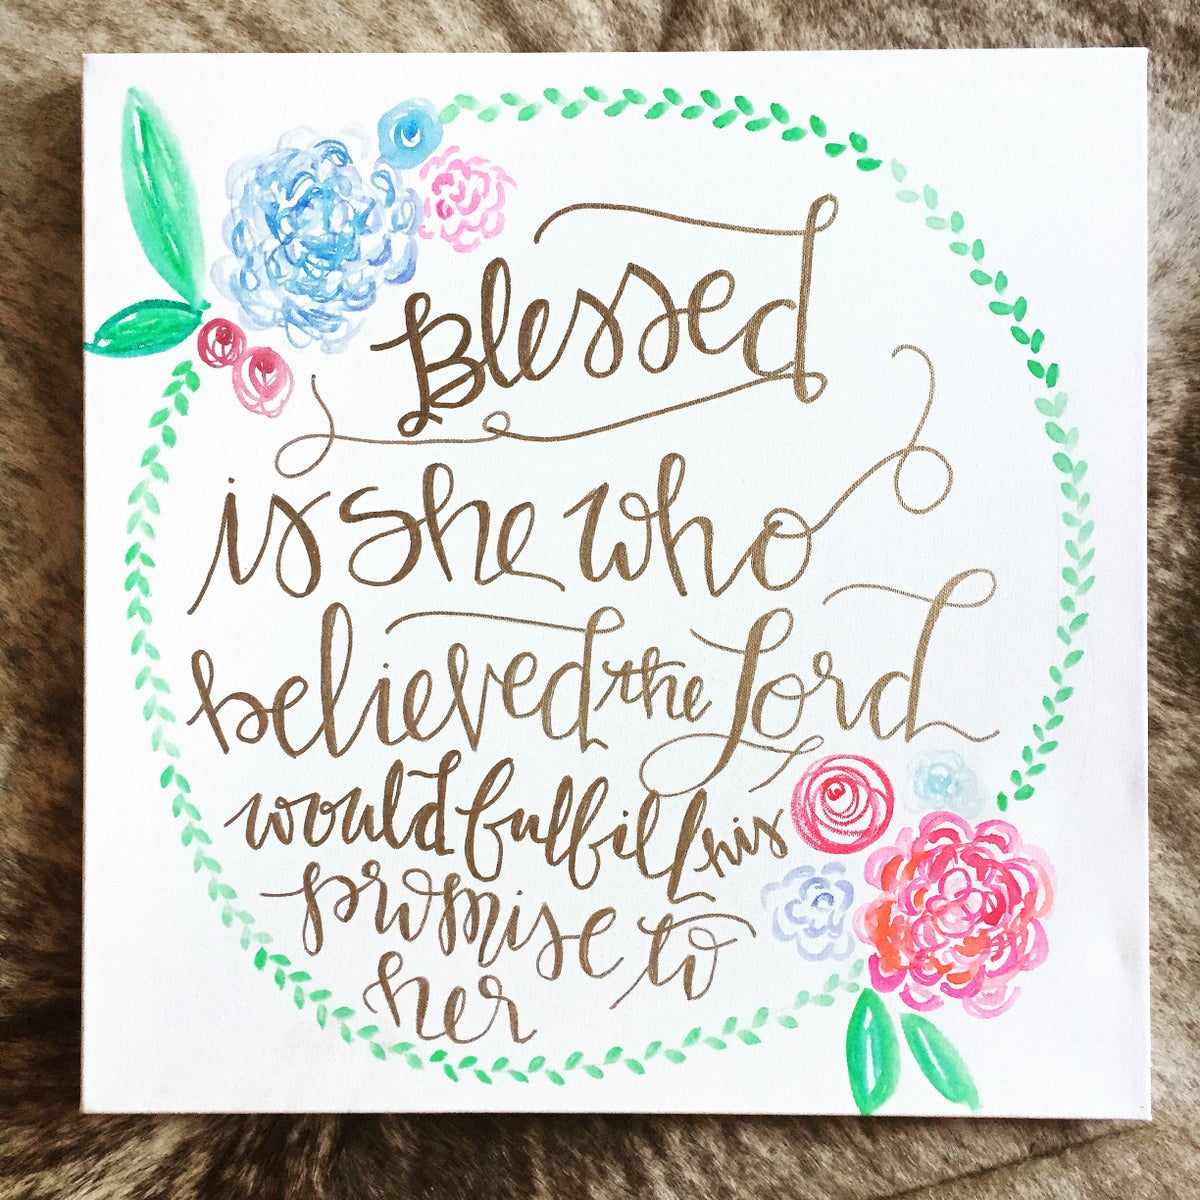 Blessed
is she who
believed the Lord
would fulfill his
promise to
her